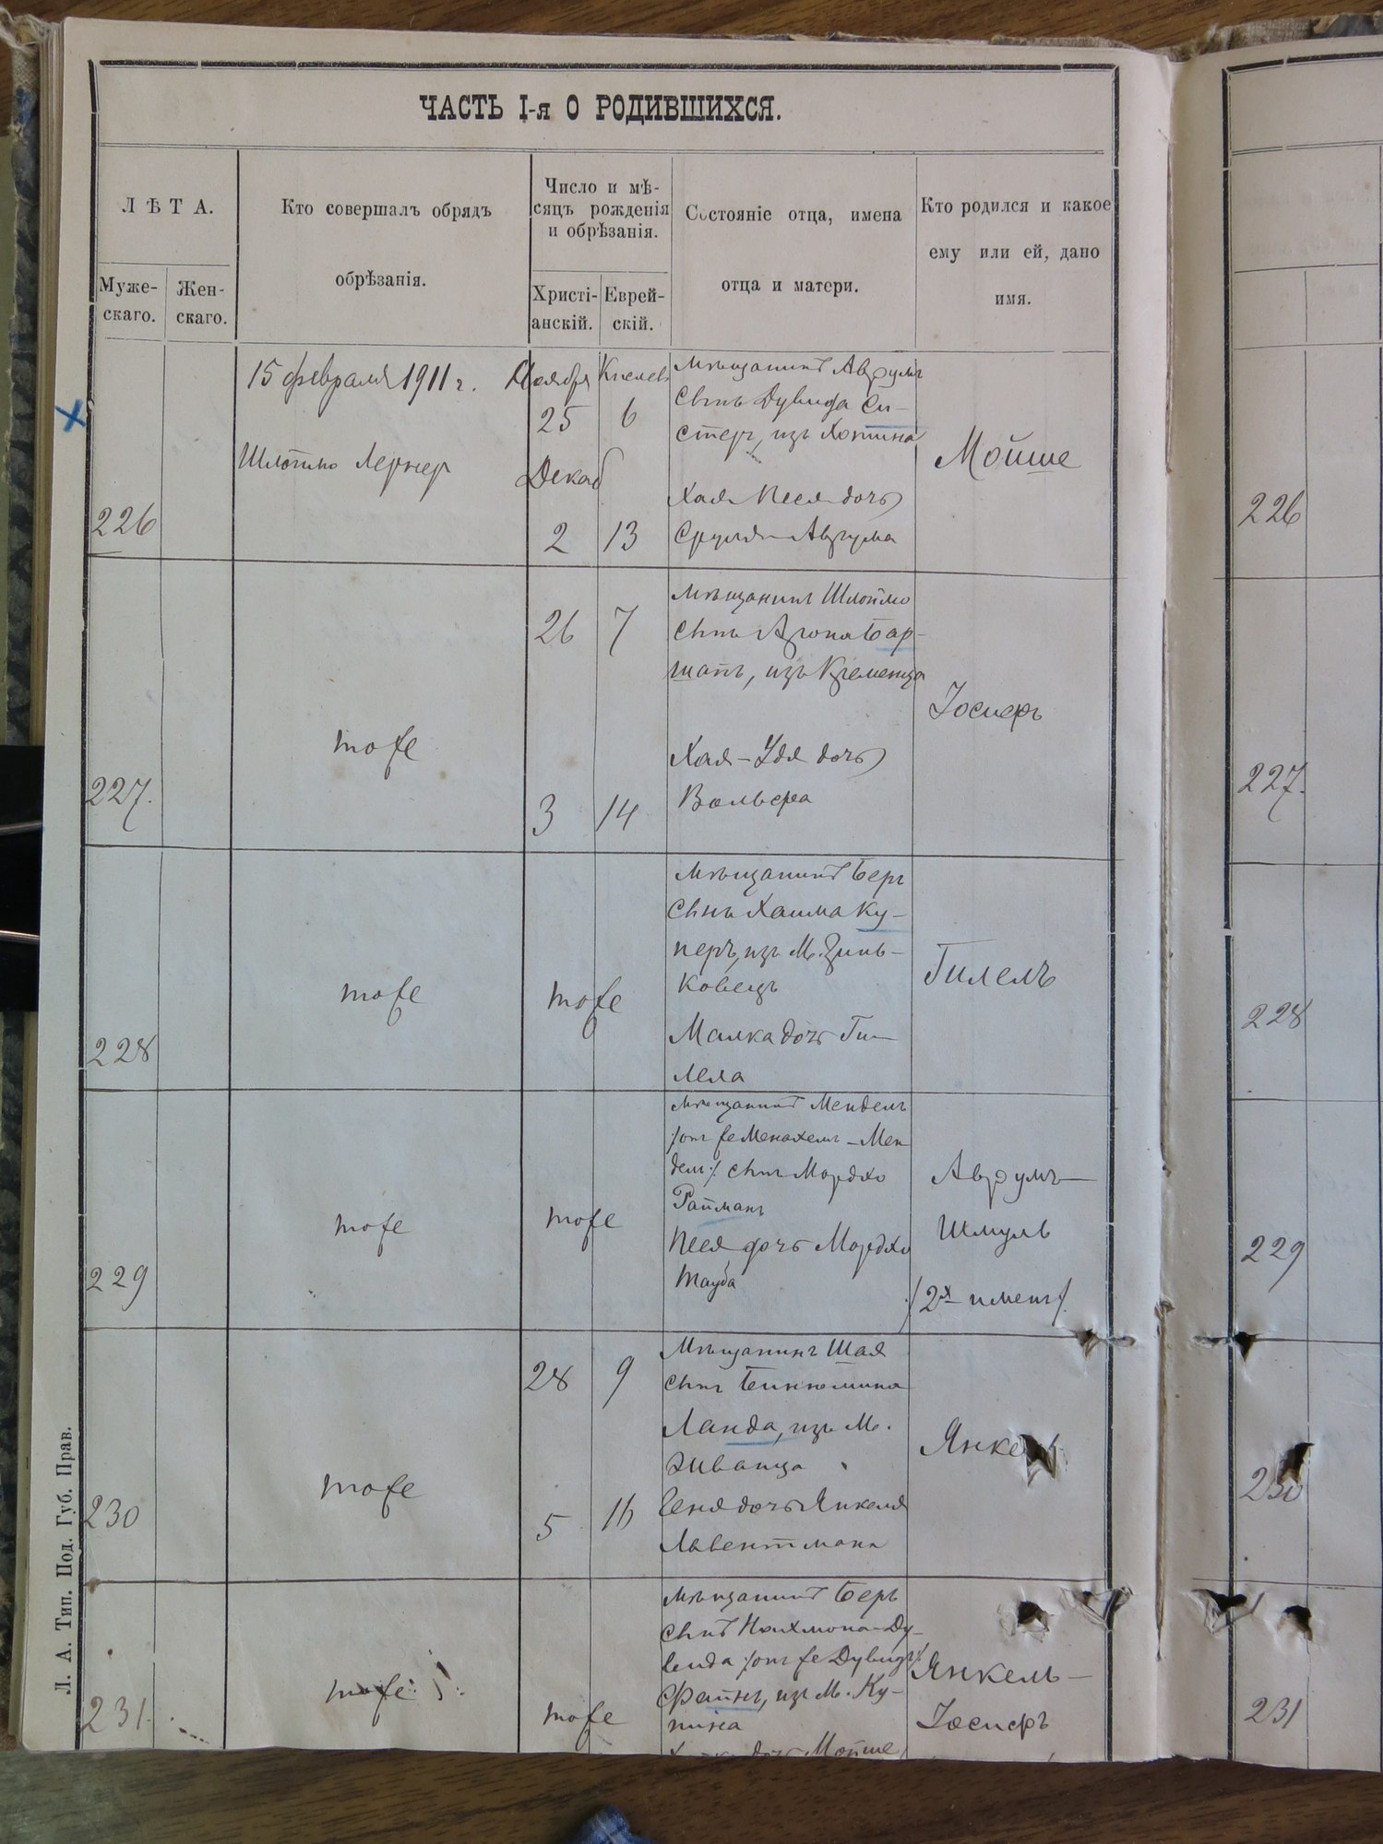 ЧАСТЬ I-я О РОДИВШИХСЯ.
ЛѢТА.
Муже-
скаго.
Жен-
скаго.
Кто совершалъ обрядъ
обрѣзанія.
Число и мѣ-
сяцъ рожденія
и обрѣзанія.
Христі-
анскій.
Еврей-
скій.
Состояніе отца, имена
отца и матери.
Кто родился и какое
ему или ей, дано
имя.
226
15 февраля 1911 г.
Шлоймо Лернер
Ноября
25
Декаб
2
Кислев
6
13
Мѣщанинъ Аврумъ
сынъ Дувида Си-
стер, изъ Хотина
Хая Песя дочь
Сруля-Аврума
Мойше
226
227.
тоже
26 7
3 14
Мѣщанинъ Шлоймо
сынъ Арона Бар-
матъ, изъ Кременца
Хая-Удя дочь
Вольфа
Іосифъ
227.
228
тоже
тоже
Мѣщанинъ Беръ
сынъ Хаима Ку-
перъ, изъ М. Зинь-
ковецъ
Малка дочь Ги-
леля
Гилель
228
229
тоже
тоже
Мѣщанинъ Мендель
/онъ же Менахемъ-Мен
дель/ сынъ Мордко
Райманъ
Песя дочь Мордко
Тауба
Аврумъ-
Шмуль
/2х именъ/.
229
230
тоже
28 9
5 16
Мѣщанинъ Шая
сынъ Бенюмина
Ланда, изъ М.
Жванца
Геня дочь Янкеля
Лавентмана
230
231.
тоже
тоже
Мѣщанинъ Беръ
сынъ Нахмона-Ду-
вида /онъ же Дувидъ/
Файнъ, изъ М. Ку-
пина
дочь Мойше
Янкель-
Іосифъ
231
Л. А. Тип. Под. Губ. Прав.